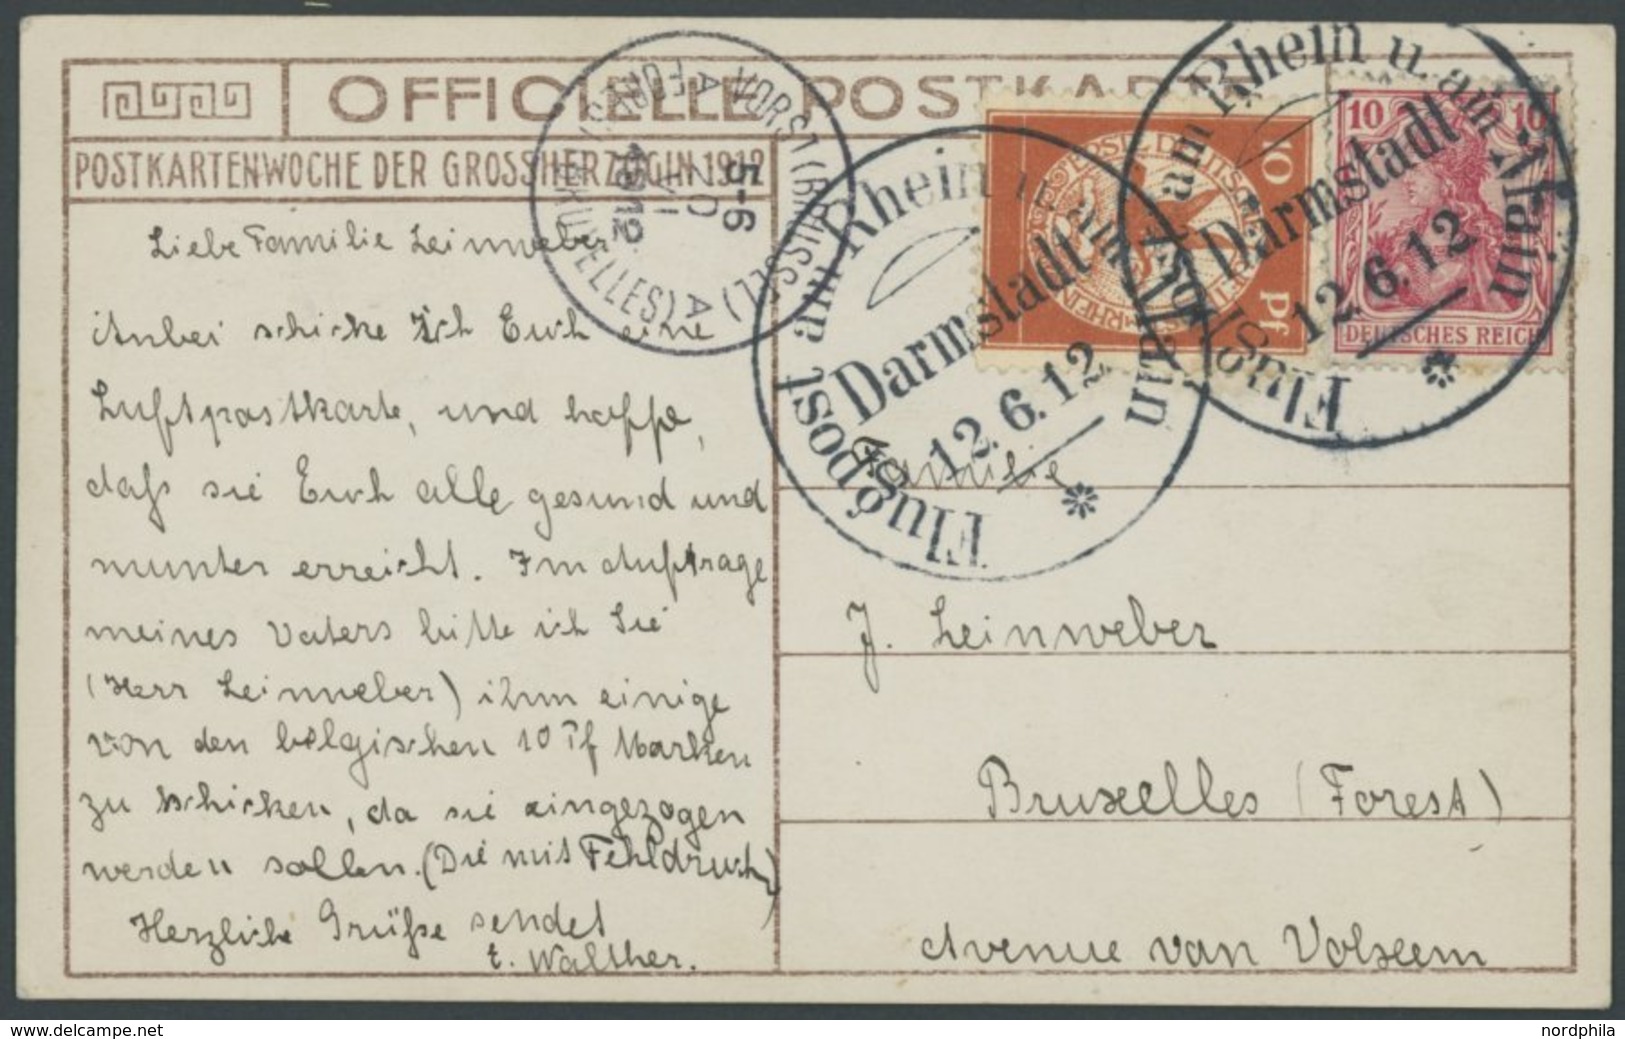 OFFICIELLE POSTKARTE
POSTKARTENWOCHE DER GROSSHERZOGIN 1912
Liebe Familie Leinweber
Anbei schicke ich Euch eine
Luftpostkarte, und hoffe,
daß sie Euch alle gesund und
munter erreicht. Im Auftrage
meines Vaters bitte ich Sie
(Herr Leinweber) ihm einige
von den belgischen 10 Pf Marken
zu schicken, da sie eingezogen
werden sollen. (Die mit Fehldruck)
Herzliche Grüße sendet
t. Walther.
VORST (BRUSSEL)
FOREST (BRUXELLES)
5-6
1912
Flugpost am Rhein u. am Main
Darmstadt
12.6.12
10 Pf
Flugpost am Rhein u. am Main
Darmstadt
12.6.12
10 10
DEUTSCHES REICH
Familie
J. Leinweber
Bruxelles (Forest)
Avenue van Volxem
www.delcampe.net
nordphila